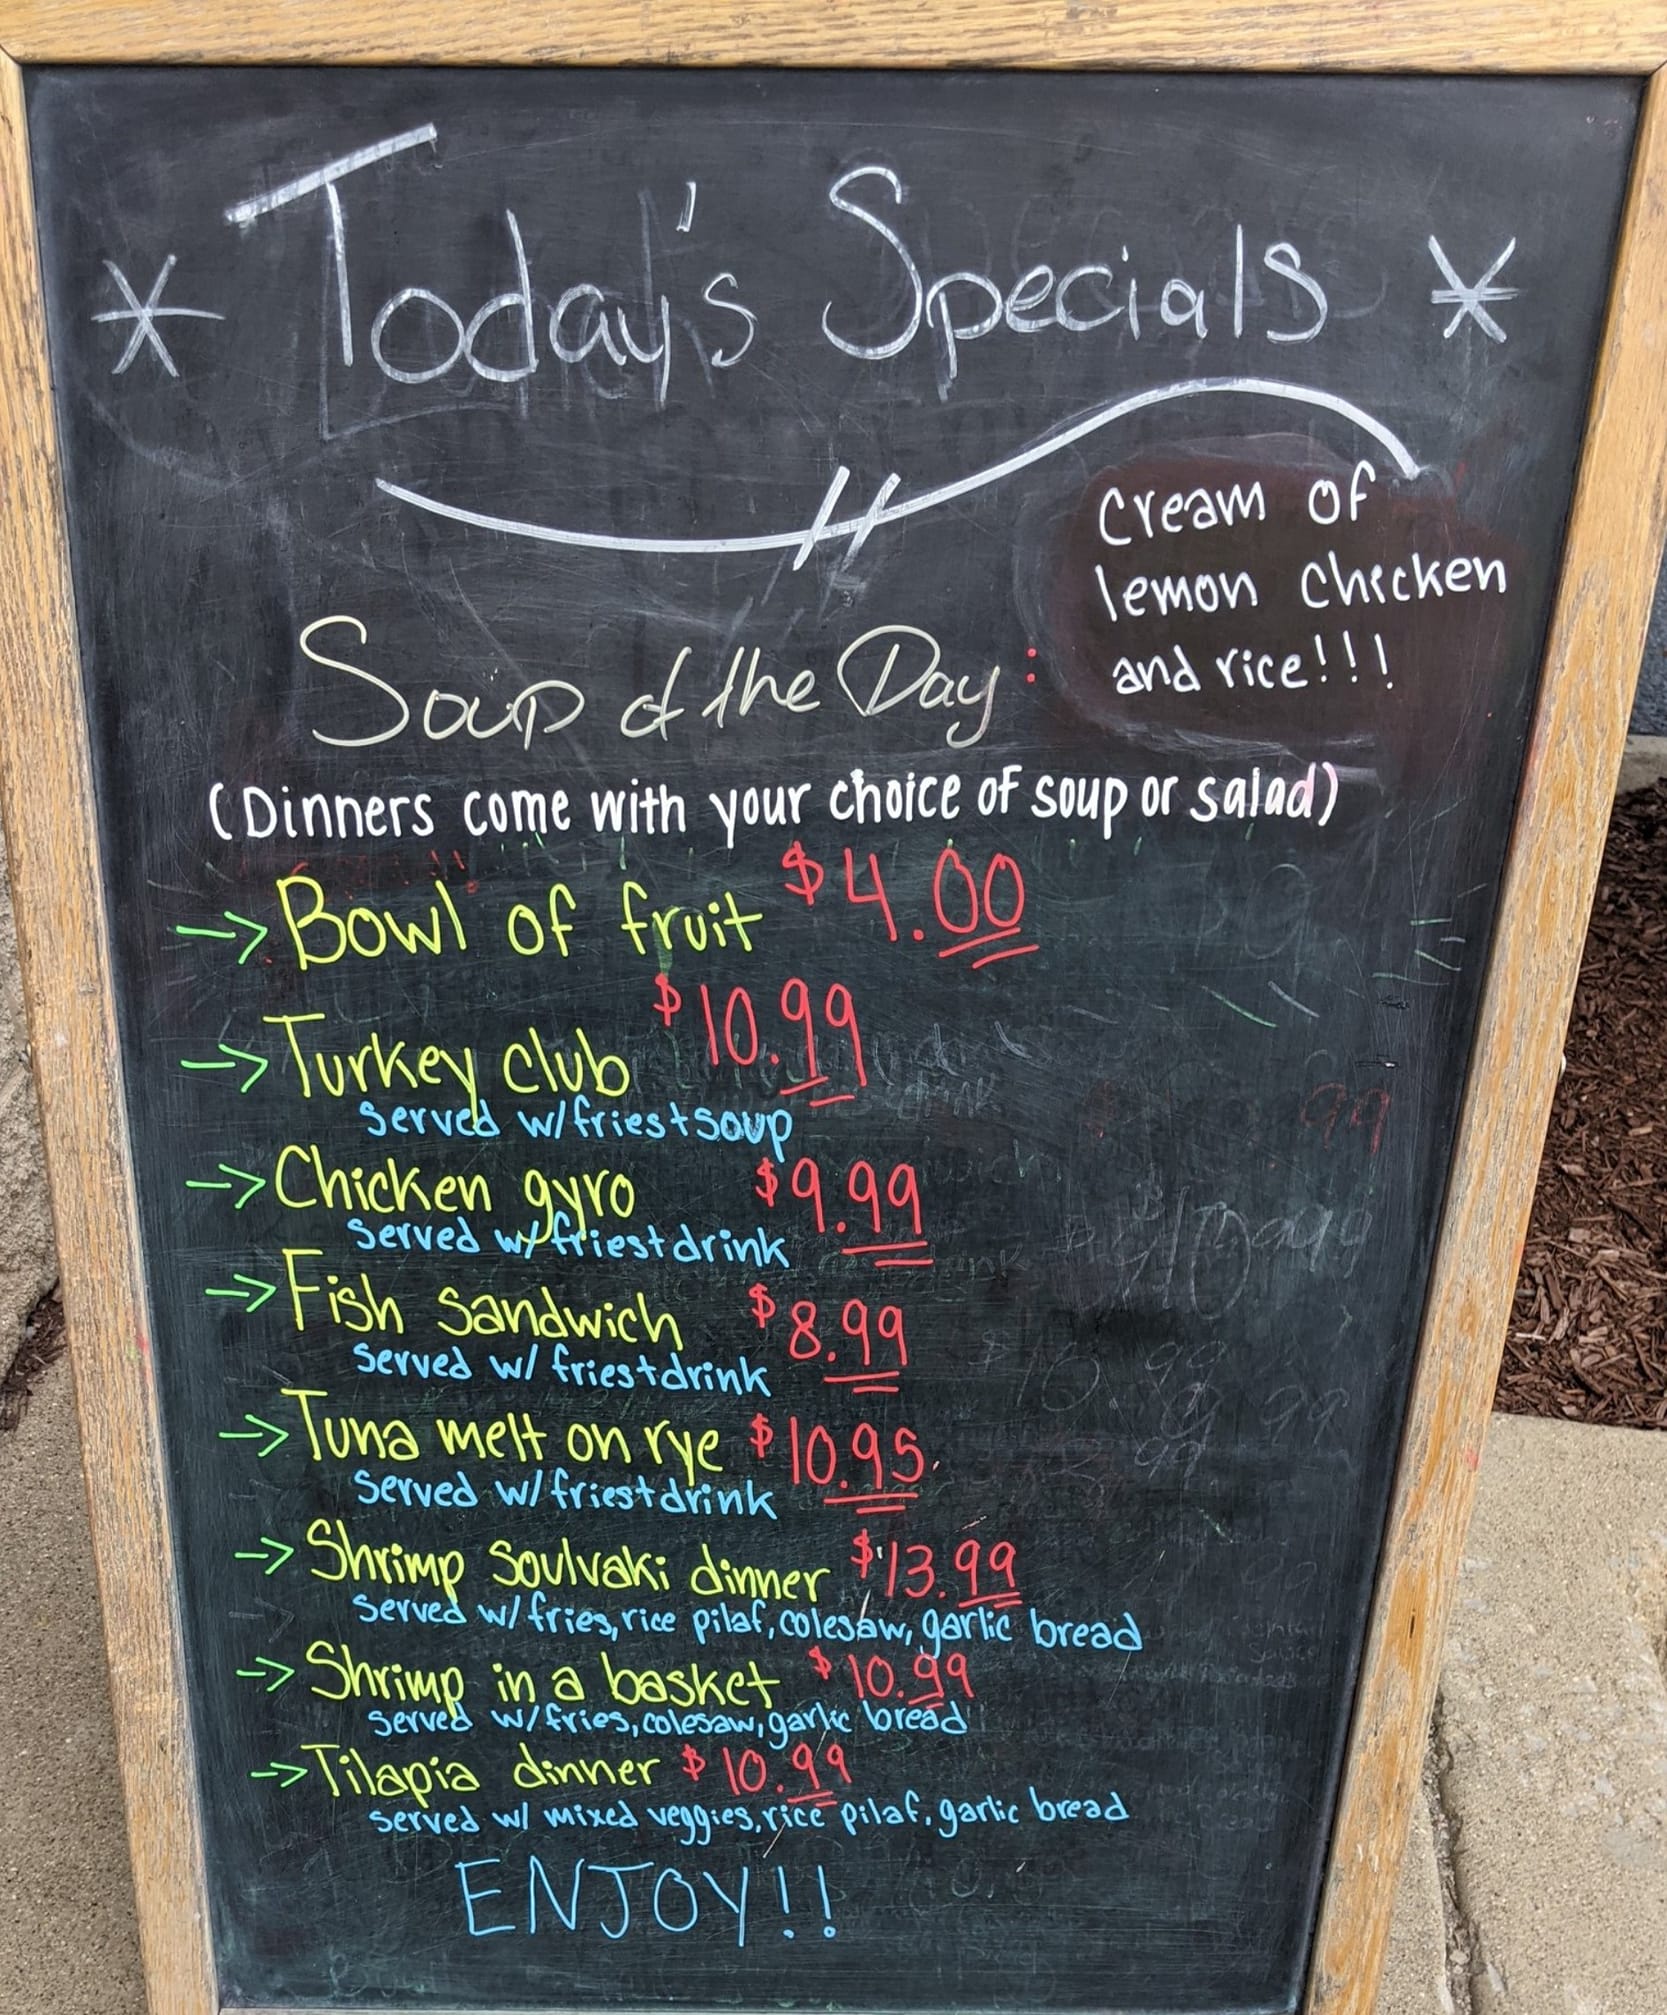 * Today's Specials *
Cream of
lemon chicken
and rice!!!
Soup of the Day:
(Dinners come with your choice of soup or salad)
-> Bowl of fruit $4.00
-> Turkey club $10.99
Served w/fries+soup
-> Chicken gyro $9.99
Served w/fries+drink
-> Fish sandwich $8.99
Served w/ fries+drink
-> Tuna melt on rye $10.95
Served w/fries+drink
-> Shrimp Soulvaki dinner $13.99
Served w/fries, rice pilaf, colesaw, garlic bread
-> Shrimp in a basket $10.99
Served w/fries, colesaw, garlic bread
-> Tilapia dinner $10.99
served w/ mixed veggies, rice pilaf, garlic bread
ENJOY!!